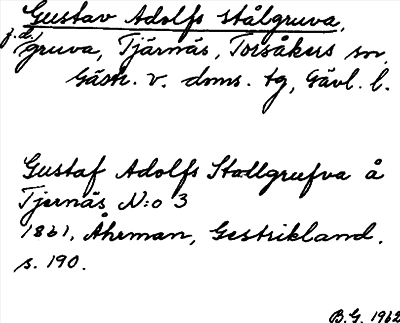 Gustav Adolfs stålgruva,
f.d./
gruva, Tjärnäs, Torsåkers sn,
Gästr. v. doms. tg, Gävl. l.
Gustaf Adolfs Stallgrufva å
Tjernäs N:o 3
1861, Åhrman, Gestrikland.
s. 190.
B.G. 1962